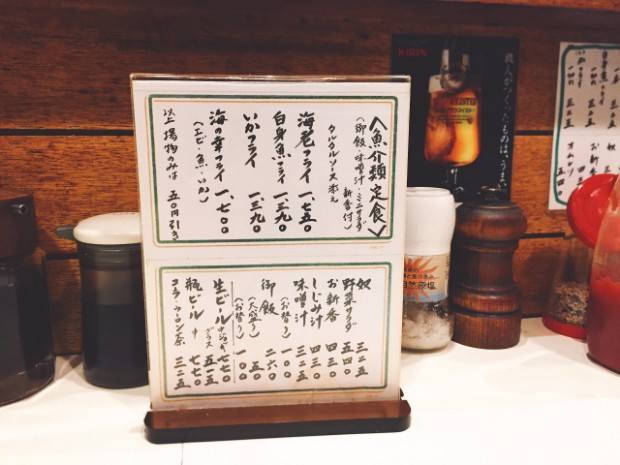 〈魚介類定食〉
(御飯・味噌汁・ミニサラダ
新香付)
タルタルソース添え
海老フライ 一、七五〇
白身魚フライ 一、三九〇
いかフライ 一、三九〇
海の幸フライ 一、七〇〇
(エビ・魚・いか)
以上揚物のみは 五〇円引き
奴 三二五
野菜サラダ 五四〇
お新香 四三〇
しじみ汁 四三〇
味噌汁 三二五
(お替り) 一〇〇
御飯 二六〇
(大盛り) 五〇
(お替り) 一〇〇
生ビール 中ジョッキ 七七〇
グラス 五一五
瓶ビール 中 七七〇
コーラ・ウーロン茶 三二五
KIRIN
職人がつくったものは、うまい
自然原塩
お新香
オムレツ